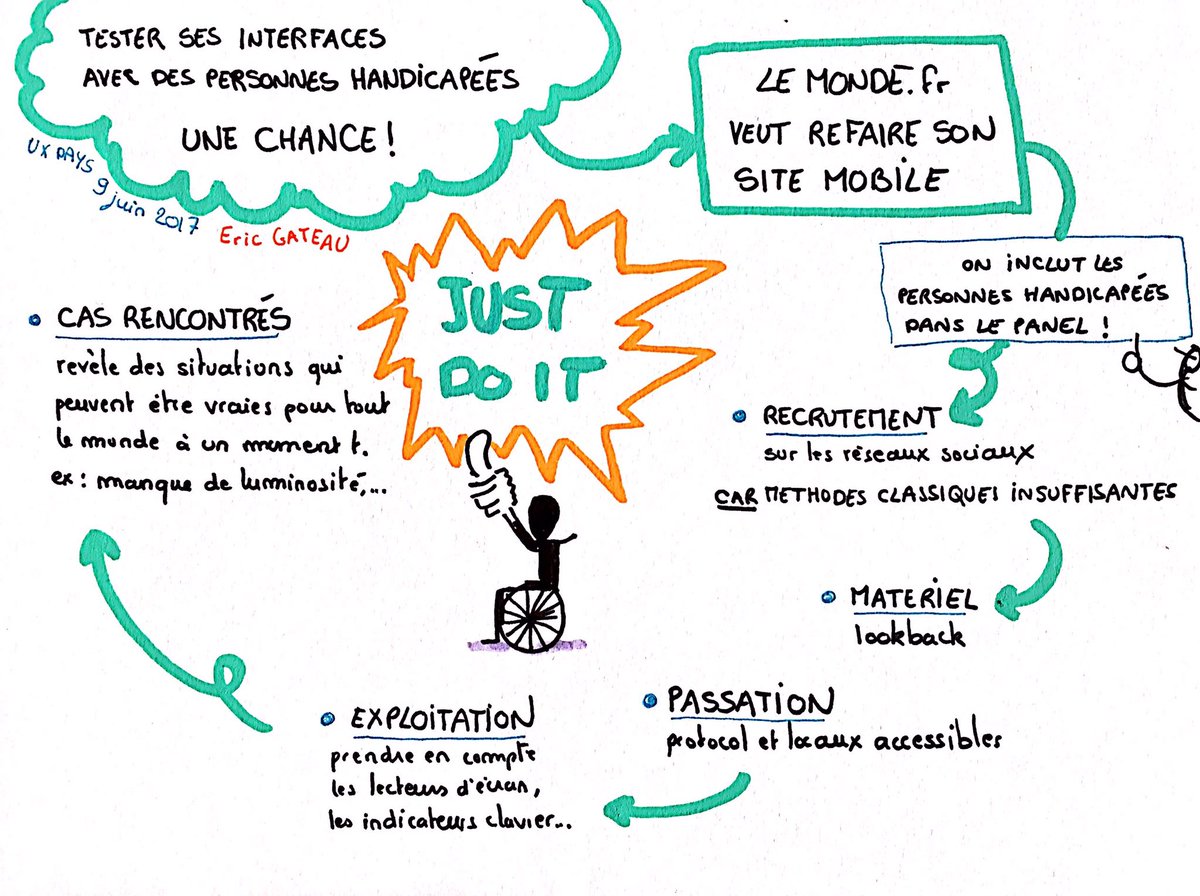 TESTER SES INTERFACES
AVEC DES PERSONNES HANDICAPÉES
UNE CHANCE !
UX DAYS 9 juin 2017
Eric GATEAU
LE MONDE.fr
VEUT REFAIRE SON
SITE MOBILE
ON INCLUT LES
PERSONNES HANDICAPÉES
DANS LE PANEL !
• RECRUTEMENT
sur les réseaux sociaux
CAR METHODES CLASSIQUES INSUFFISANTES
• MATERIEL
lookback
• PASSATION
protocol et locaux accessibles
• EXPLOITATION
prendre en compte
les lecteurs d'écran,
les indicateurs clavier...
• CAS RENCONTRÉS
revèle des situations qui
peuvent être vraies pour tout
le monde à un moment t.
ex : manque de luminosité,...
JUST
DO IT